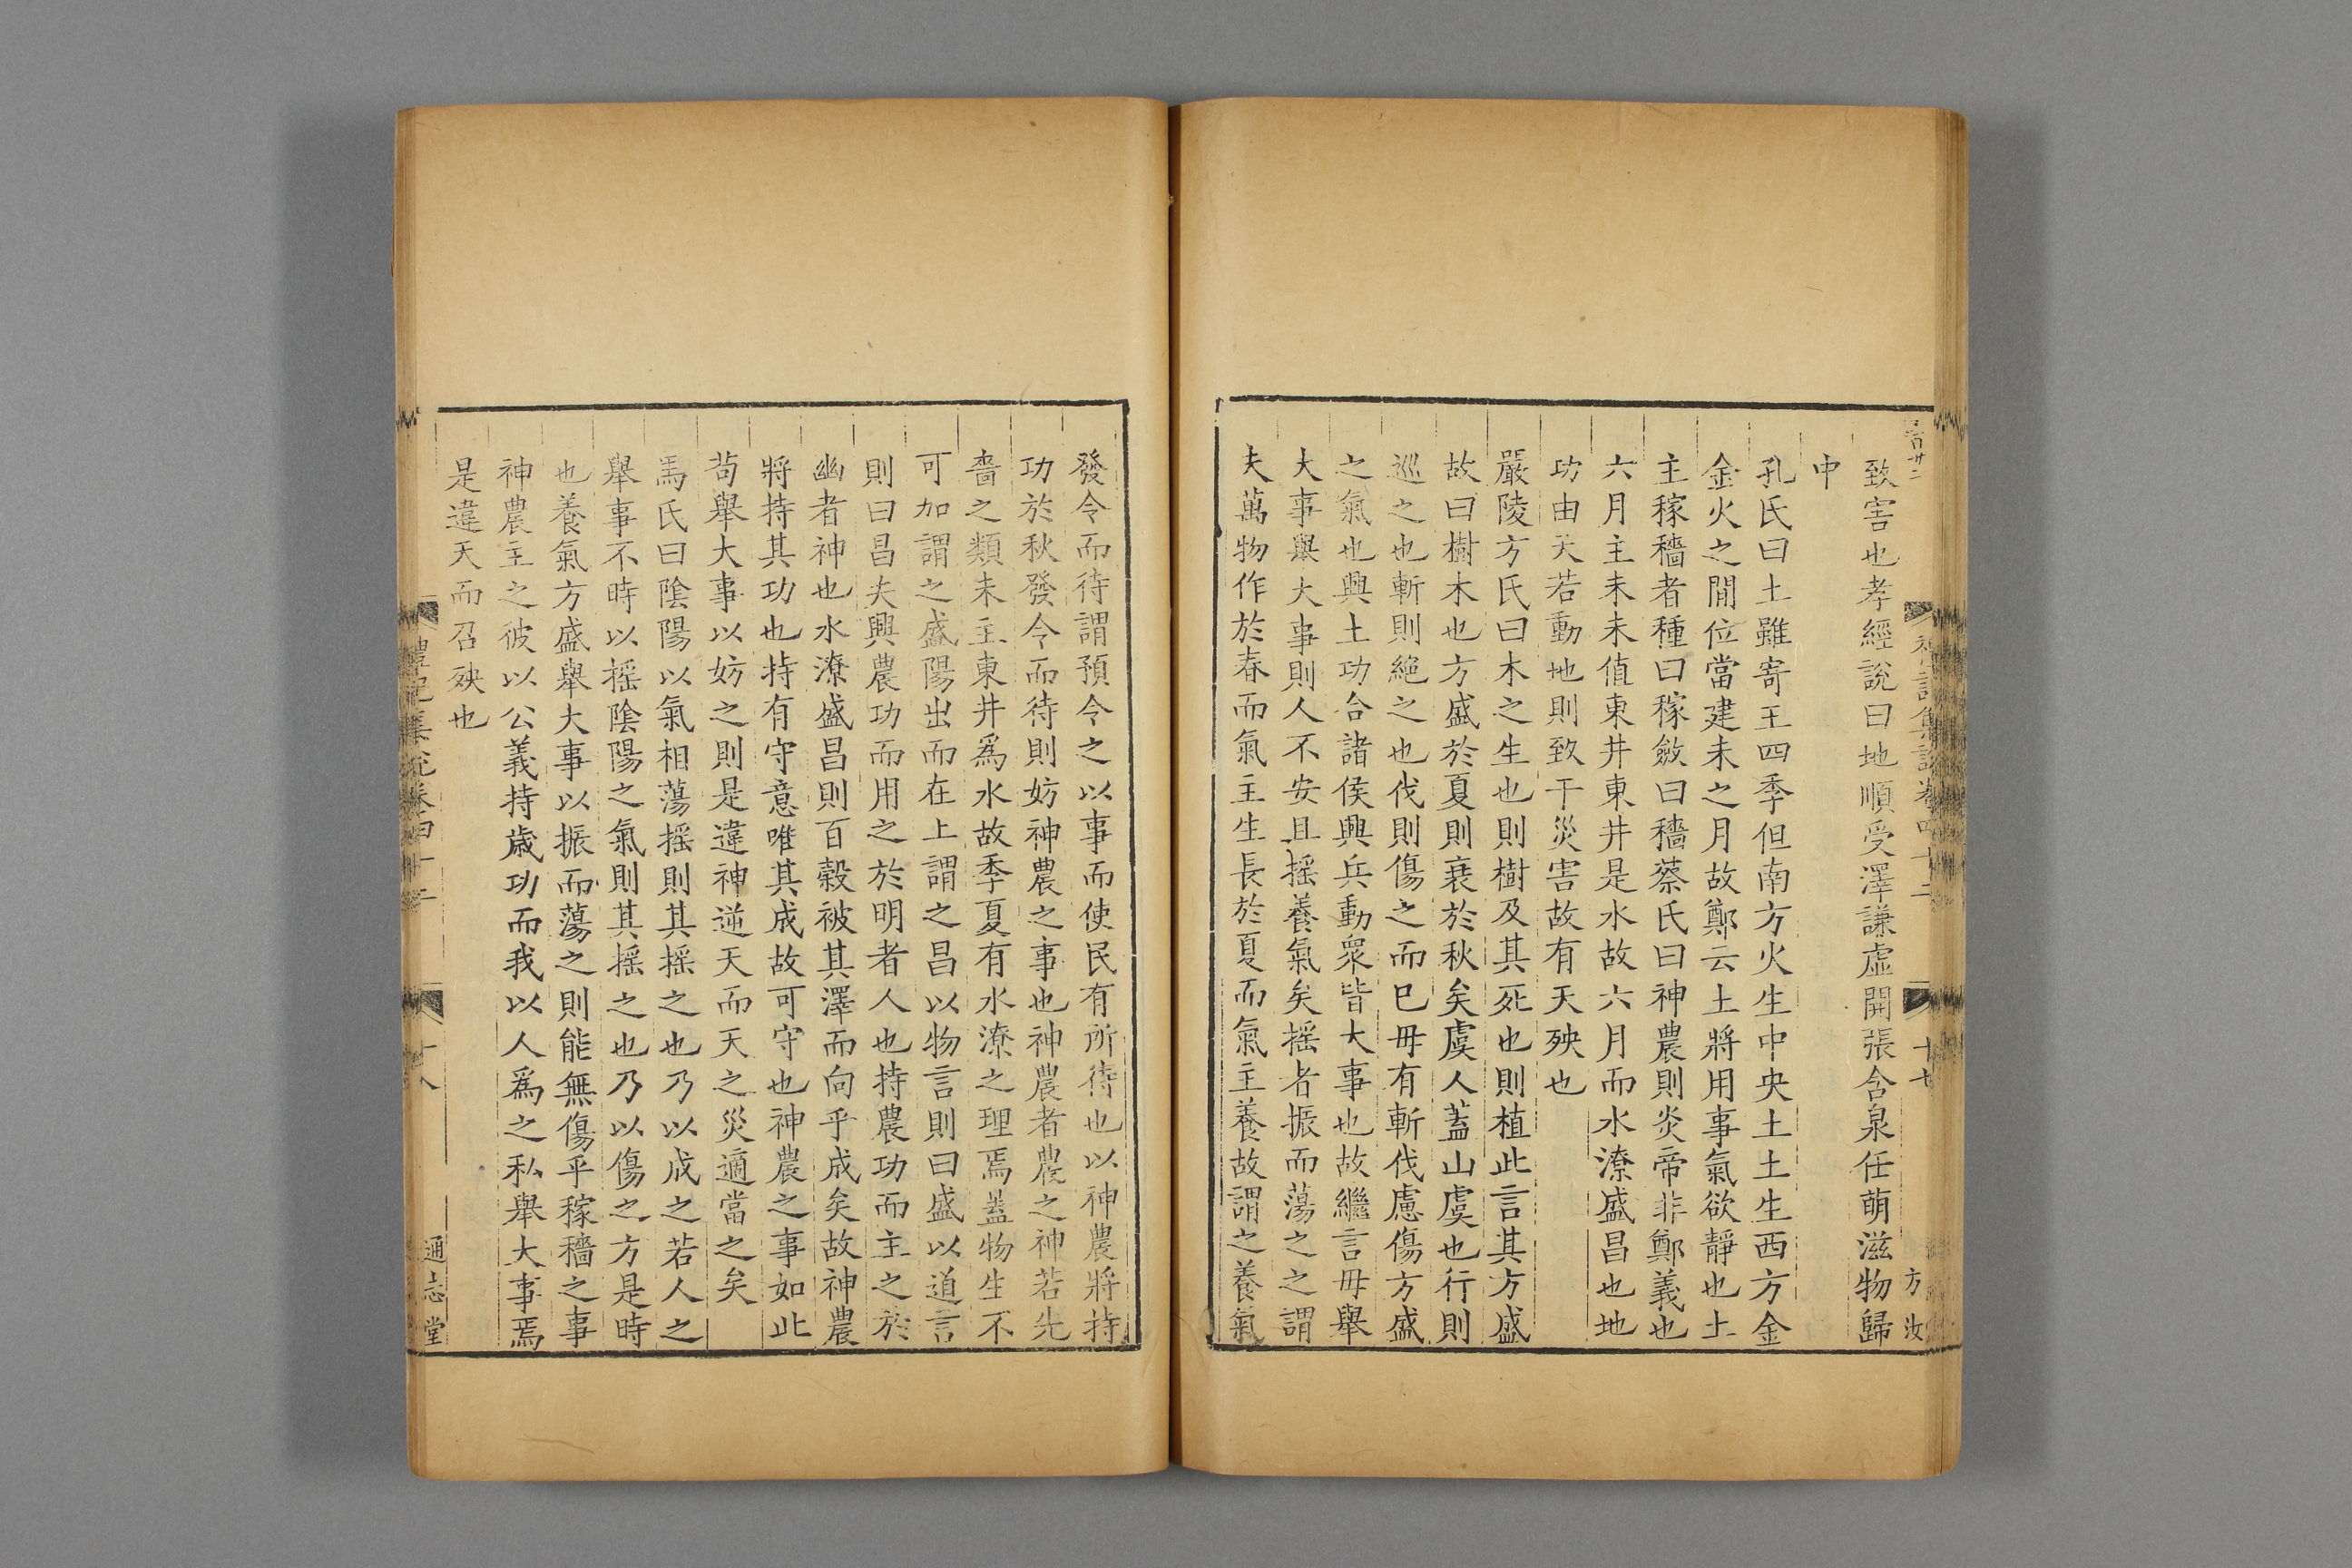 致害也孝經說曰地順受澤謙虛開張含泉任萌滋物歸
中
孔氏曰土雖寄王四季但南方火生中央土土生西方金
金火之間位當建未之月故鄭云土將用事氣欲靜也土
主稼穡者種曰稼斂曰穡蔡氏曰神農則炎帝非鄭義也
六月主未未值東井東井是水故六月而水潦盛昌也地
功由天若動地則致干災害故有天殃也
嚴陵方氏曰木之生也則樹及其死也則植此言其方盛
故曰樹木也方盛於夏則衰於秋矣虞人蓋山虞也行則
巡之也斬則絕之也伐則傷之而已毋有斬伐慮傷方盛
之氣也興土功合諸侯興兵動衆皆大事也故繼言毋舉
大事舉大事則人不安且摇養氣矣摇者振而蕩之之謂
夫萬物作於春而氣主生長於夏而氣主養故謂之養氣
發令而待謂預令之以事而使民有所待也以神農將持
功於秋發令而待則妨神農之事也神農者農之神若先
嗇之類未主東井爲水故季夏有水潦之理焉蓋物生不
可加謂之盛陽出而在上謂之昌以物言則曰盛以道言
則曰昌夫興農功而用之於明者人也持農功而主之於
幽者神也水潦盛昌則百穀被其澤而向乎成矣故神農
將持其功也持有守意唯其成故可守也神農之事如此
茍舉大事以妨之則是違神逆天而天之災適當之矣
馬氏曰陰陽以氣相蕩摇則其摇之也乃以成之若人之
舉事不時以摇陰陽之氣則其摇之也乃以傷之方是時
也養氣方盛舉大事以振而蕩之則能無傷乎稼穡之事
神農主之彼以公義持歲功而我以人爲之私舉大事焉
是違天而召殃也
禮記集說卷四十二
十七
方汝
十八
通志堂